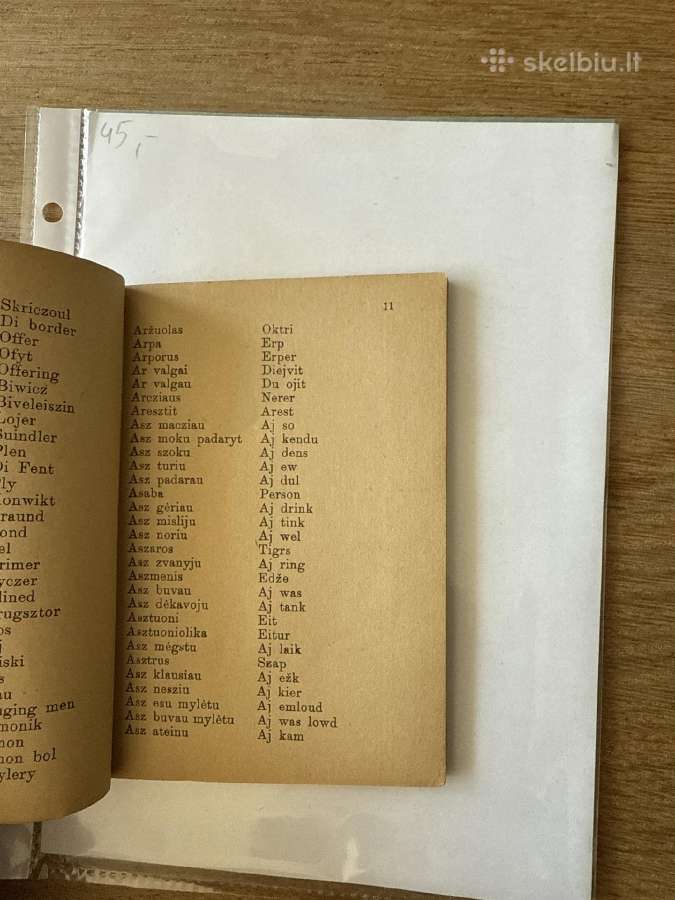 skelbiu.lt
45,-
Skriczoul
Di border
Offer
Ofyt
Offering
Biwicz
Biveleiszin
Lojer
Suindler
Plen
Di Fent
men
bol
11
Aržuolas Oktri
Arpa Erp
Arporus Erper
Ar valgai Diejvit
Ar valgau Du ojit
Arcziaus Nerer
Aresztit Arest
Asz macziau Aj so
Asz moku padaryt Aj kendu
Asz szoku Aj dens
Asz turiu Aj ew
Asz padarau Aj dul
Asaba Person
Asz gėriau Aj drink
Asz misliju Aj tink
Asz noriu Aj wel
Aszaros Tigrs
Asz zvanyju Aj ring
Aszmenis Edže
Asz buvau Aj was
Asz dėkavoju Aj tank
Asztuoni Eit
Asztuoniolika Eitur
Asz mėgstu Aj laik
Asztrus Szap
Asz klausiau Aj ežk
Asz nesziu Aj kier
Asz esu mylėtu Aj emloud
Asz buvau mylėtu Aj was lowd
Asz ateinu Aj kam